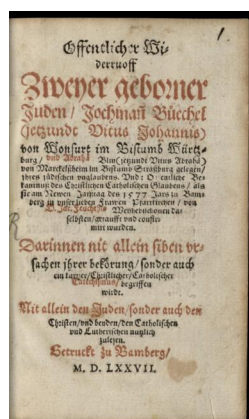 1.
Offentlicher Wi-
derruoff
Zweyer geborner
Juden / Jochman Büechel
jetzundt Vitus Johannis /
von Wonfurt im Bistumb Würtz-
burg / und Abrah Blin / jetzundt Venus Abrahã
von Marckelsheim im Bistumb Straßburg gelegen /
ihres jüdischen unglaubens. Vnd: Ordenliche Be-
kantnuß des Christlichen Catholischen Glaubens / als
sie am Newen Jarstag des 1577 Jars zu Bam-
berg zu unser lieben Frawen Pfarrkirchen / von
D. Jac. Feuchtio Weyhebischouen da-
selbsten / getaufft und confir-
mirt wurden.
Darinnen nit allein siben vr-
sachen jhrer bekörung / sonder auch
ein kurtzer / Christlicher / Catholischer
Catechismus / begriffen
wirdt.
Nit allein den Juden / sonder auch den
Christen / vnd beyden / den Catholischen
vnd Lutherischen nutzlich
zulesen.
Getruckt zu Bamberg /
M. D. LXXVII.